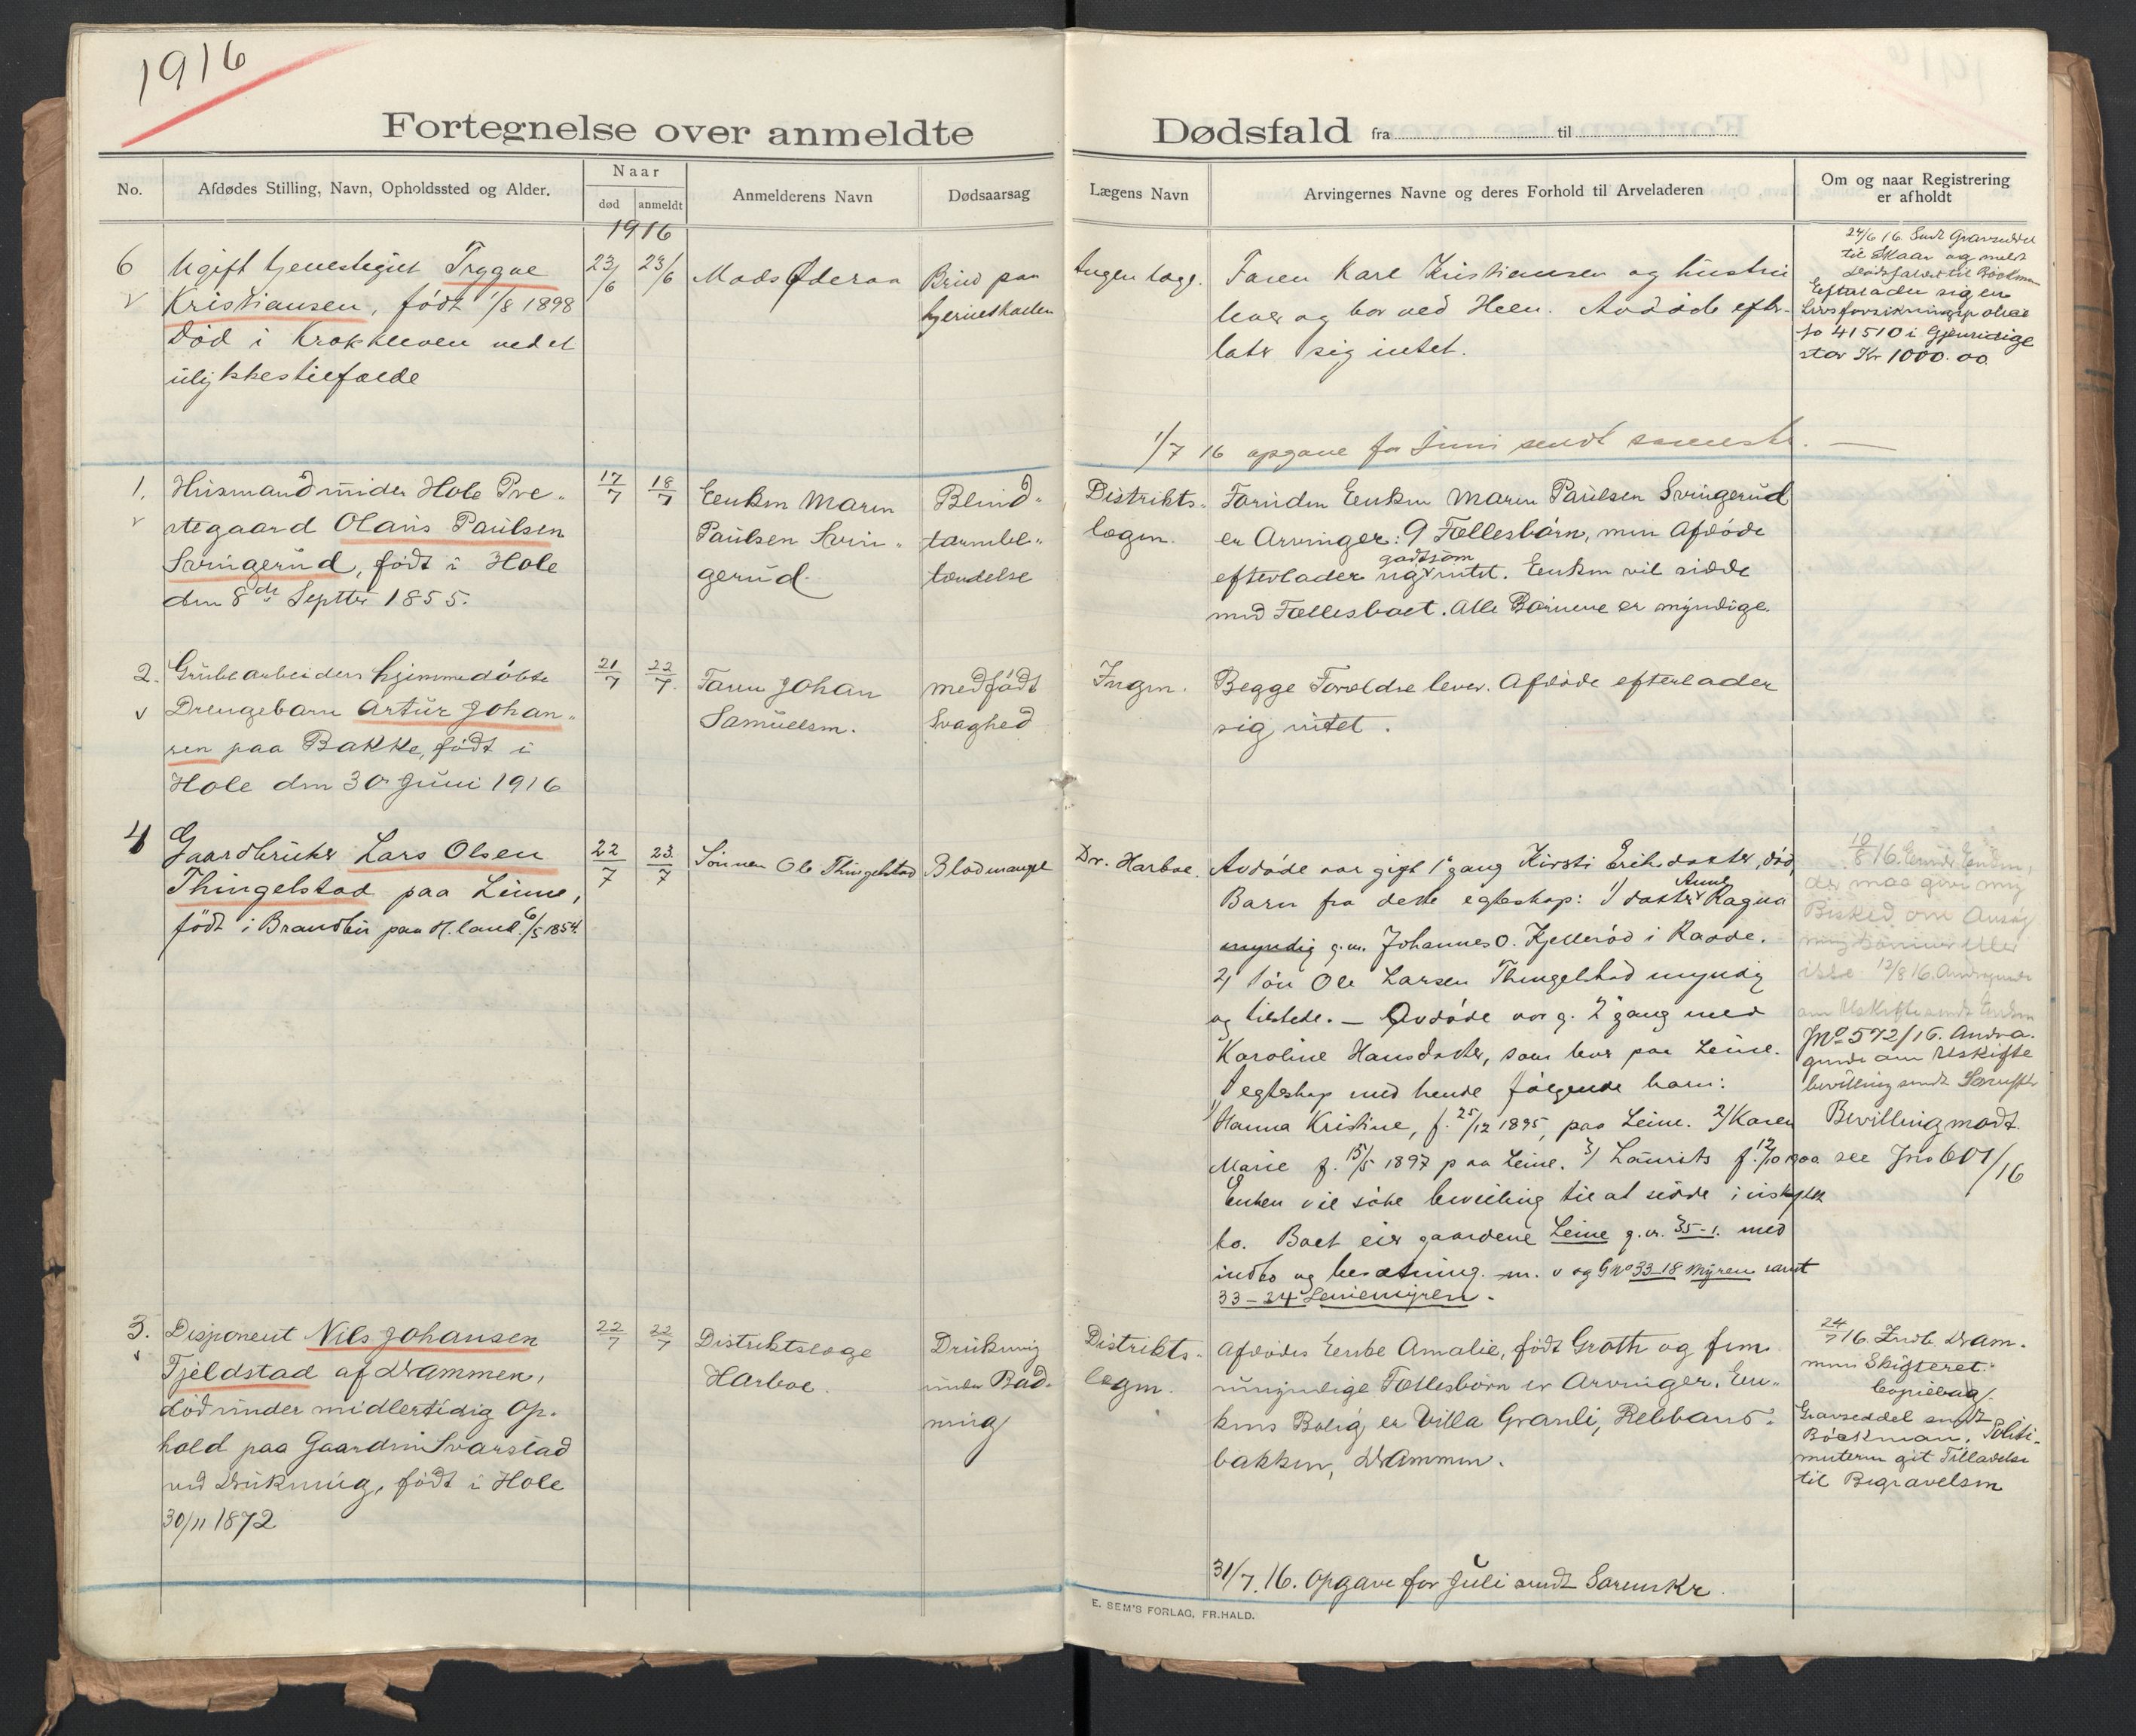 1916
Fortegnelse over anmeldte Dødsfald fra til
No.
Afdødes Stilling, Navn, Opholdssted og Alder.
Naar
død
anmeldt
Anmelderens Navn
Dødsaarsag
Lægens Navn
Arvingernes Navne og deres Forhold til Arveladeren
Om og naar Registrering
er afholdt
1916
6
Ugift tjenestegut Trygve
Kristiansen, født 1/8 1898
Død i Krokkleven ved et
ulykkestilfælde
23/6
23/6
Mads Øderaa
Brud paa
hjerneskallen
Ingen læge.
Faren Karl Kristiansen og hustru
lever og bor ved Heen. Avdøde efter-
later sig intet.
24/6 16. Sendt Gravseddel
til Skaar og meldt
Dødsfaldet til Böckman
Efterlader sig en
Livsforsikringspolice
No 41510 i Gjensidige
stor Kr 1000.00
1/7 16 opgave for Juni sendt sorenskr.
1.
Husmand under Hole Pre-
stegaard Olaus Paulsen
Svingerud, født i Hole
den 8de Septbr 1855.
17/7
18/7
Enken Maren
Paulsen Svin-
gerud.
Blind-
tarmbe-
tændelse
Distrikts-
lægen.
Foruden Enken Maren Paulsen Svingerud
er Arvinger: 9 Fællesbørn, men Afdøde
godtsom
efterlader sig intet. Enken vil sidde
med Fællesboet. Alle Børnene er myndige.
2.
Grubearbeiders hjemmedøbte
Drengebarn Artur Johan-
sen paa Bakke, født i
Hole den 30 Juni 1916
21/7
22/7.
Faren Johan
Samuelsen.
medfødt
Svaghed
Ingen.
Begge Forældre lever. Afdøde efterlader
sig intet.
4
Gaardbruker Lars Olsen
Thingelstad paa Leine,
født i Brandbu paa H.land 6/5 1854.
22/7
23/7
Sønnen Ole Thingelstad
Blodmangel
Dr. Harboe.
Avdøde var gift 1 gang Kirsti Eriksdatter, død,
Barn fra dette egteskap: 1/ datter Anne Ragna
myndig g.m. Johannes O. Kjellerød i Raade.
2/ Søn Ole Larsen Thingelstad myndig
og tilstede. — Avdøde var g. 2 gang med
Karoline Hansdatter, som lever paa Leine.
I egteskap med hende følgende barn:
1/ Hanna Kristine, f. 25/12 1895, paa Leine. 2/ Karen
Marie f. 15/5 1897 paa Leine. 3/ Laurits f. 12/10 1900
Enken vil søke bevilling til at sidde i uskiftet
bo. Boet eier gaardene Leine g.nr. 35-1. med
indbo og besætning. m. v og Gno 33-18 Myren samt
33-24 Leinemyren.
10/8 16. Erindr. Enken,
der maa give mig
Besked om Ansøg
ning kommer eller
ikke. 12/8 16. Andragende
om Uskifte sendt Enken
JNo 572/16. Andra-
gende om Uskifte
bevilling sendt Sorenskr
Bevilling modt.
see Jno 607/16
3.
Disponent Nils Johansen
Fjeldstad af Drammen,
død under midlertidig Op-
hold paa Gaarden Svarstad
ved Drukning, født i Hole
30/11 1872
22/7
22/7
Distriktslæge
Harboe.
Drukning
under Bad-
ning
Distrikts-
lægen.
Afdødes Enke Amalie, født Groth og fem
umyndige Fællesbørn er Arvinger. En-
kens Bolig er Villa Granli, Rebbans-
bakken, Drammen.
24/7 16. Indb. Dram-
mens Skifteret.
Copiebog/.
Gravseddel sendt
Böckman. Politi-
mesteren git Tilladelse
til Begravelsen
31/7.16. Opgave for Juli sendt Sorenskr.
E. SEM'S FORLAG, FR.HALD.